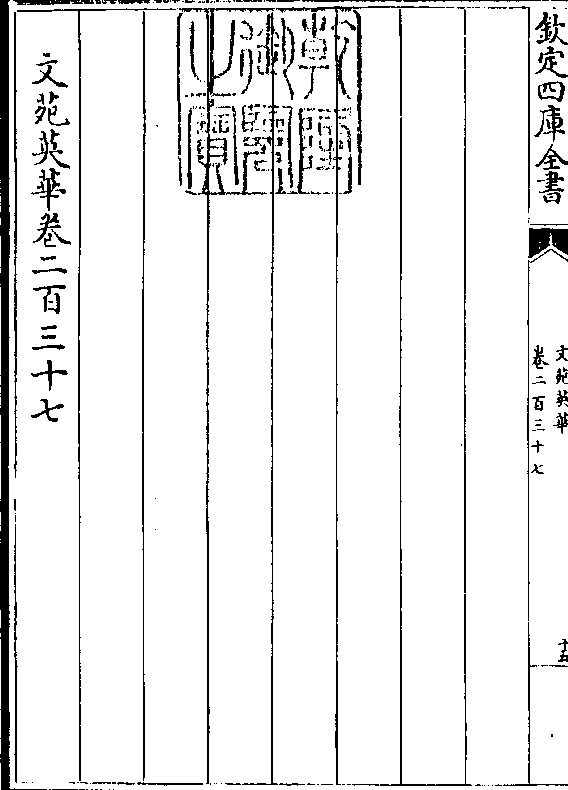 欽定四庫全書
文苑英華
卷二百三十七
十五
乾隆御覽之寶
文苑英華卷二百三十七